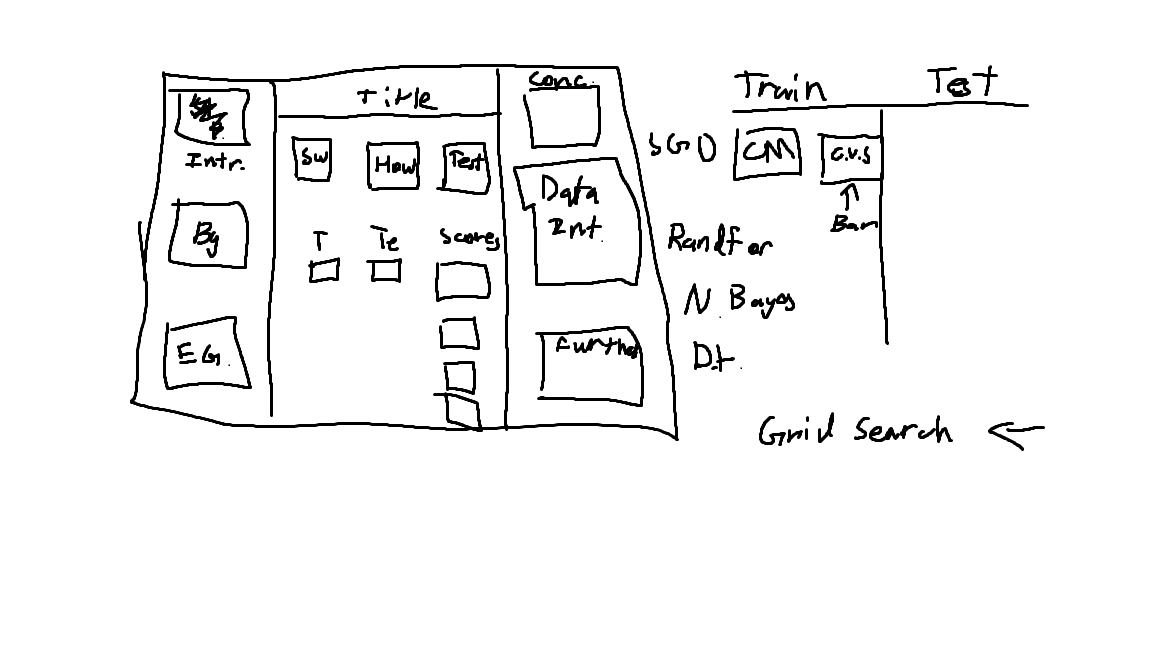 Title
Intr.
Bg
EG.
Sw
How
Test
T
Te
Scores
Conc.
Data
Int.
Further
Train
Test
SGD
CM
C.V.S
Bar
Randfor
N. Bayes
D.t.
Grid Search